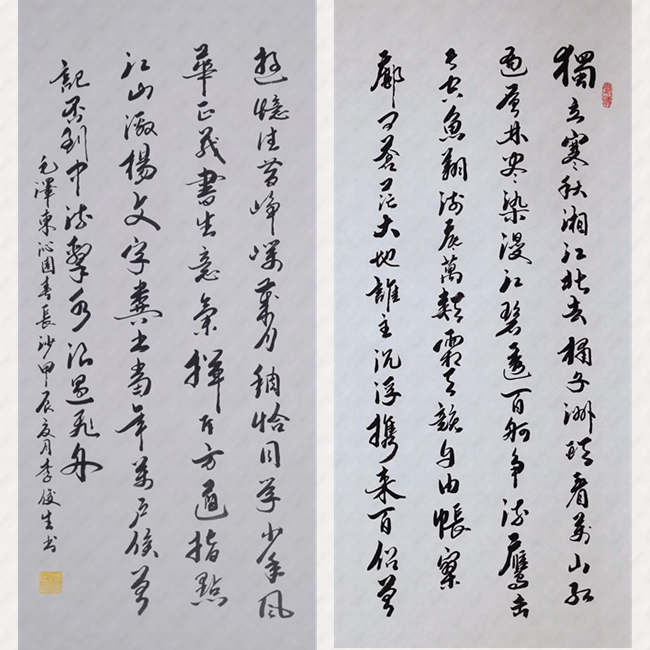 獨立寒秋湘江北去橘子洲頭看萬山紅
遍層林盡染漫江碧透百舸爭流鷹擊
長空魚翔淺底萬類霜天競自由悵寥
廓問蒼茫大地誰主沉浮攜来百侶曾
遊憶往昔崢嶸歲月稠恰同學少年風
華正茂書生意氣揮斥方遒指點
江山激揚文字糞土當年萬戶侯曾
記否到中流擊水浪遏飛舟
毛澤東沁園春長沙甲辰夏月李俊生书